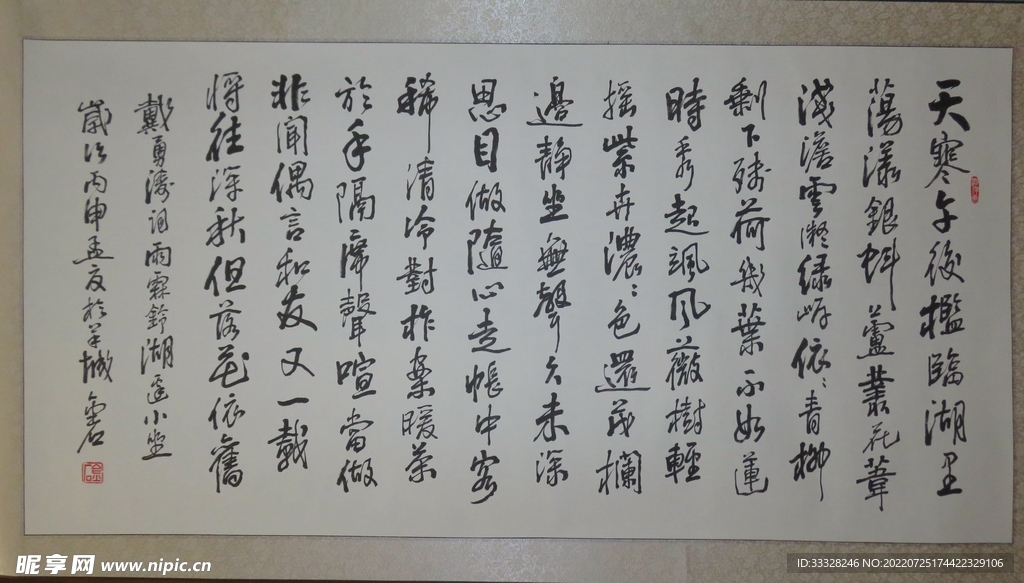 天寒午後檻臨湖里
蕩漾銀蚪蘆叢花葦
淺澹雲凝绿岸依：青柳
剩下殘荷幾葉不如蓮
時秀起颯风薇樹輕
摇紫卉濃：色還茂欄
邊静坐無聲久未深
思目做隨心走帳中客
稀清冷對柞桑暖茶
於手隔席聲喧當做
非闻偶言和友又一載
將往深秋但落花依舊
戴勇濤詞雨霖鈴湖邊小坐
歲次丙申孟夏於羊城
昵享网 www.nipic.cn
ID:33328246 NO:20220725174422329106